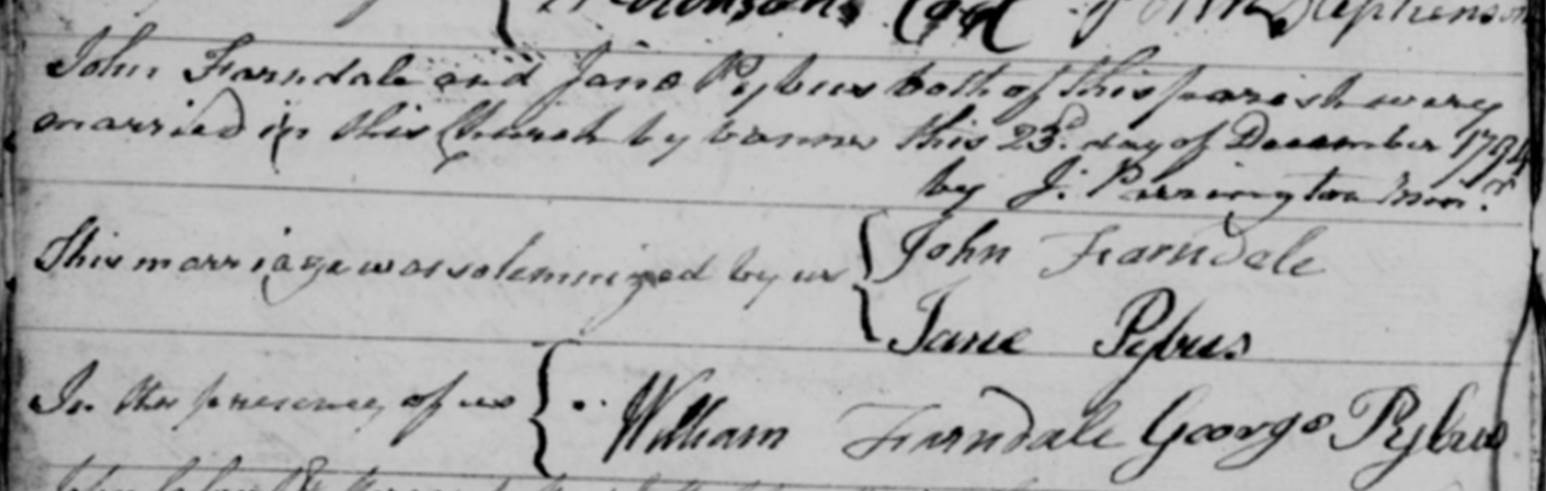 Stephenson
John Farndale and Jane Pybus both of this parish were
married in this Church by banns this 23d. day of December 1794
by J. Parrington Minr.
This marriage was solemnized by us { John Farndale
Jane Pybus
In the presence of us { William Farndale George Pybus